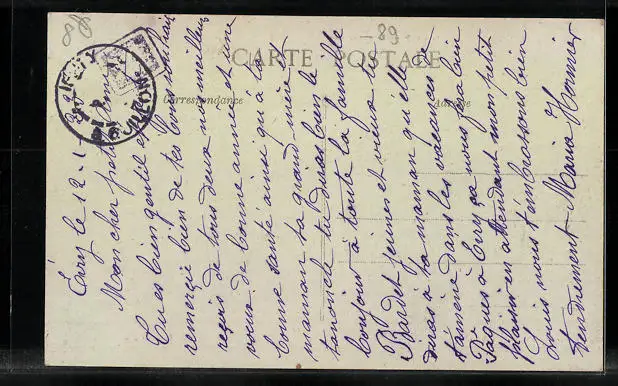 CARTE POSTALE
Correspondance
Adresse
89
Évry le 12-1-
Mon cher petit
Tu es bien gentil et
remercié bien de tes bons souhaits
reçois de tous deux nos meilleurs
voeux de bonne année et une
bonne santé ainsi qu'à ta
maman ta grand mère et
ta tu diras bien le
bonjour à toute la famille
Bardet jeunes et vieux tu
diras à ta maman qu'elle
t'amène dans les vacances de
Pâques à Évry ça nous fera bien
plaisir en attendant mon petit
Louis nous t'embrassons bien
tendrement Maria